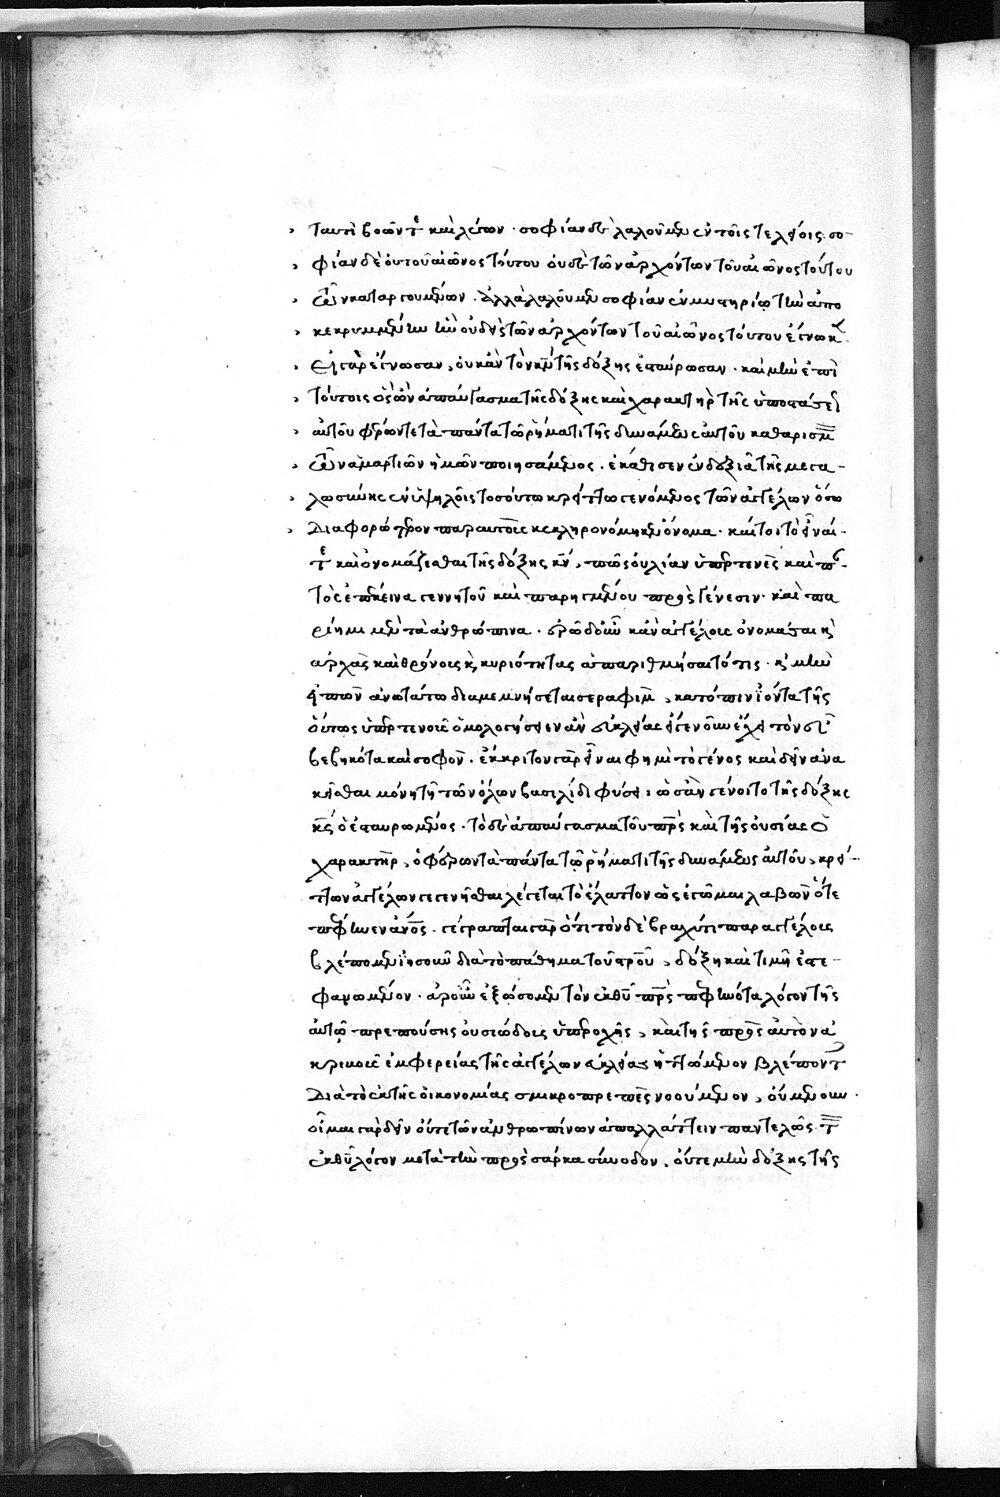 ταυτὶ βοῶντ(ος) καὶ λέγων · σοφίαν δὲ λαλοῦμεν ἐν τοῖς τελείοις· σο-
φίαν δὲ οὐ τοῦ αἰῶνος τούτου οὐδὲ τῶν ἀρχόντων τοῦ αἰῶνος τούτου
τῶν καταργουμένων · ἀλλὰ λαλοῦμεν σοφίαν ἐν μυστηρίῳ τὴν ἀπο
κεκρυμμένην ἣν οὐδεὶς τῶν ἀρχόντων τοῦ αἰῶνος τούτου ἔγνωκεν
εἰ γὰρ ἔγνωσαν, οὐκ ἂν τὸν κν τῆς δόξης ἐσταύρωσαν · καὶ μὴν ἐπὶ
τούτοις ὃς ὢν ἀπαύγασμα τῆς δόξης καὶ χαρακτὴρ τῆς ὑποστάσε
αὐτοῦ φέρων τε τὰ πάντα τῷ ῥήματι τῆς δυνάμεως αὐτοῦ καθαρισμ
τῶν ἁμαρτιῶν ἡμῶν ποιησάμενος · ἐκάθισεν ἐν δεξιᾷ τῆς μεγα-
λωσύνης ἐν ὑψηλοῖς τοσούτω κρείττω γενόμενος τῶν ἀγγέλων ὅσω
διαφορώτερον παρ αὐτοὺς κεκληρονόμηκεν ὄνομα · καίτοι τὸ εἶναί-
τε καὶ ὀνομάζεσθαι τῆς δόξης κν, πῶς οὐ λίαν ὑπερτενὲς καὶ π -
τὸς ἐπέκεινα γεννητοῦ καὶ παρηγμένου πρὸς γένεσιν · καὶ πα
ρίημι μὲν τὰ ἀνθρώπινα · ἐρῶ δ οὖν κἂν ἀγγέλους ὀνομάσαι κ
ἀρχὰς καὶ θρόνους κ κυριότητας ἀπαριθμήσαιτό τις · κ μὴν
εἴ που ἀνωτάτω διαμεμνήσεται σεραφίμ, κατόπιν ἰόντα τῆς
οὕτως ὑπερτενοῦς ὁμολογήσειεν ἂν εὐκλείας εἴ γε νοῦν ἔχει τὸν
βεβηκότα καὶ σοφόν · ἔκκριτον γὰρ εἶναι φημὶ τὸ γένος καὶ δεῖν ἀνα
κεῖσθαι μόνῃ τῇ τῶν ὅλων βασιλίδι φύσει · πῶς ἂν γένοιτο τῆς δόξης
κς ὁ ἐσταυρωμένος · τὸ δὲ ἀπαύγασμα τοῦ πρς καὶ τῆς οὐσίας ὁ
χαρακτὴρ, ὁ φέρων τὰ πάντα τῷ ῥήματι τῆς δυνάμεως αὐτοῦ, κρεί-
ττων ἀγγέλων γεγενῆσθαι λέγεται τὸ ἔλαττον ὡς ἐγῶμαι λαβὼν ὅτε
πέφηνεν ἄνος · γέγραπται γὰρ ὅτι τὸν δὲ βραχύ τι παρ ἀγγέλους
βλέπομεν ἰησοῦν διὰ τὸ πάθημα τοῦ σρου, δόξῃ καὶ τιμῇ ἐστε-
φανωμένον · ἆρ οὖν ἐξώσομεν τὸν ἐκ θυ πρς πεφηνότα λόγον τῆς
αὐτῷ πρεπούσης οὐσιώδους ὑπεροχῆς, καὶ τῆς πρὸς αὐτὸν ἀ
κριβοῦς ἐμφερείας τῆς ἀγγέλων εὐκλείας ἡττώμενον βλέποντες
διὰ τὸ ἐκ τῆς οἰκονομίας σμικροπρεπὲς νοούμενον, οὐ μὲν οὖν ·
οἶμαι γὰρ δεῖν οὔτε τῶν ἀνθρωπίνων ἀπαλλάττειν παντελῶς τ
ἐκ θυ λόγον μετὰ τὴν πρὸς σάρκα σύνοδον, οὔτε μὴν δόξης τῆς